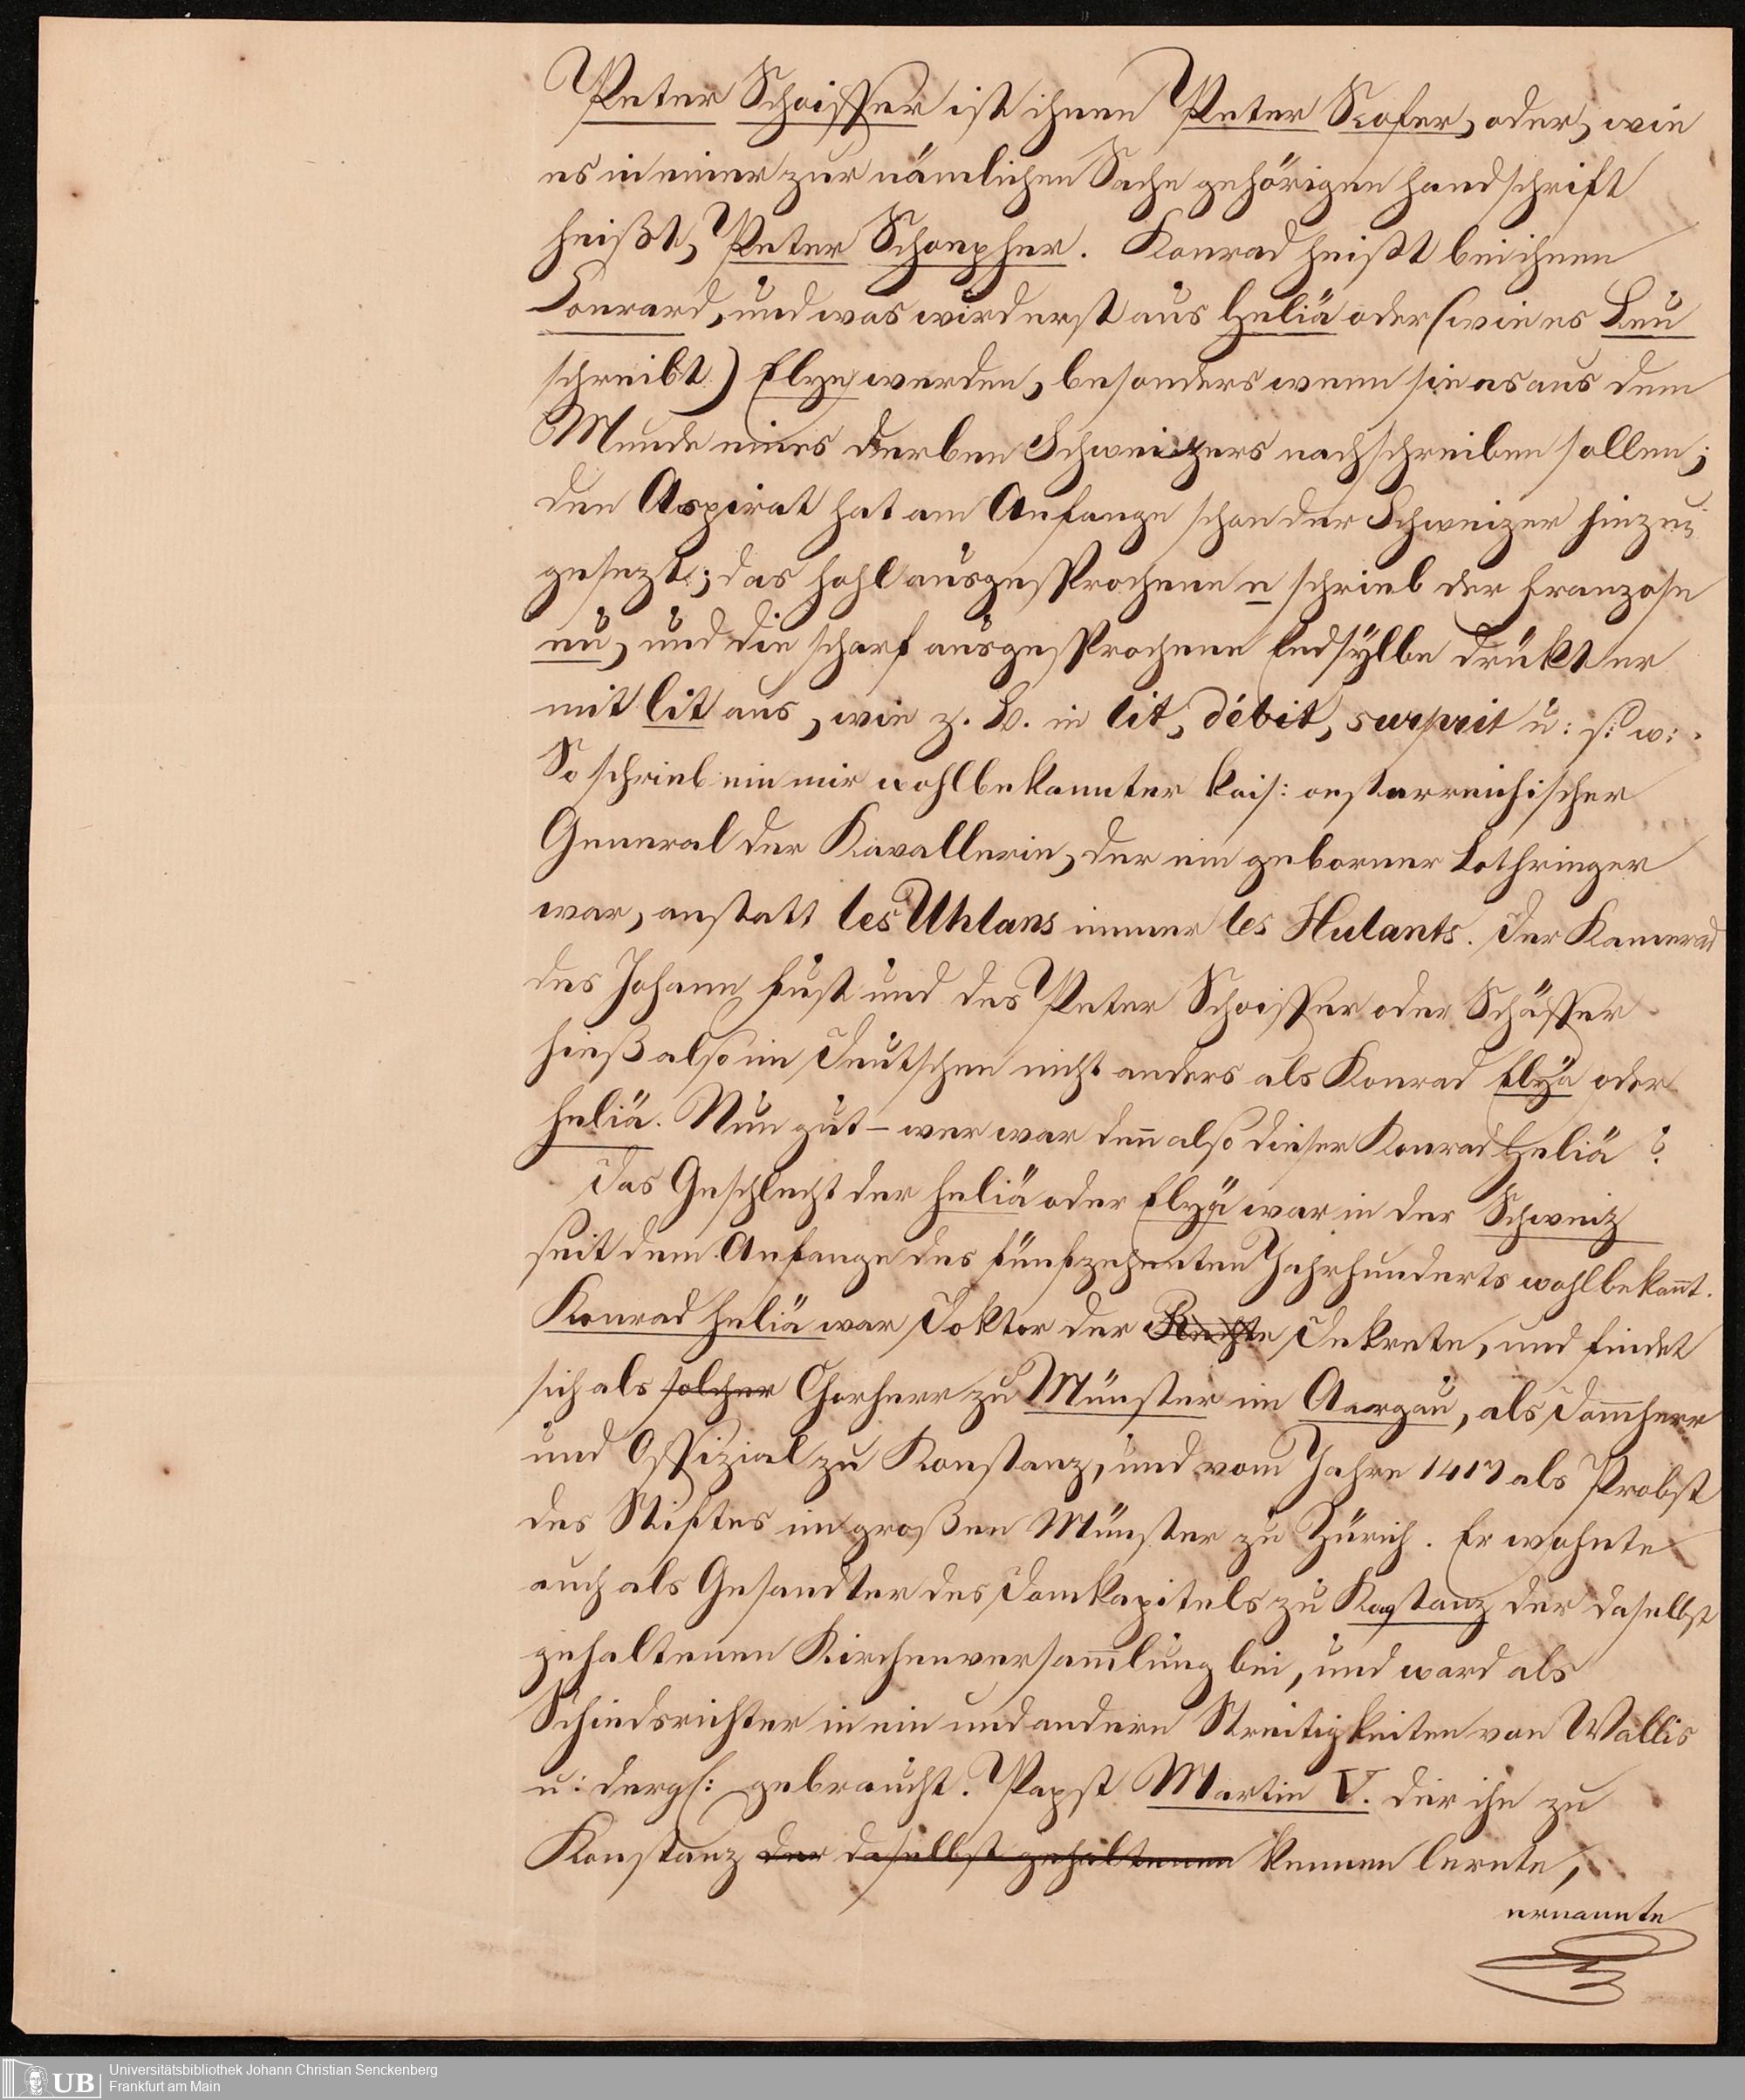 Peter Schoiffer ist ihnen Peter Scofer, oder, wie
es in einer zur nämlichen Sache gehörigen Handschrift
heißt, Peter Schoepher. Konrad heißt bei ihnen
Conrard, und was wird erst aus Heliä oder (wie es Leu
schreibt) Elye werden, besonders wenn sie es aus dem
Munde eines derben Schweizers nachschreiben sollen;
den Aspirat hat am Anfange schon der Schweizer hinzu=
gesezt; das hohl ausgesprochene e schrieb der Franzose
eu, und die scharf ausgesprochene Endsylbe drükt er
mit lit aus, wie z. B. in lit, débit, surprit u: s: w:.
So schrieb ein mir wohlbekannter kais: oesterreichischer
General der Kavallerie, der ein geborner Lothringer
war, anstatt les Uhlans immer les Hulants. Der Kamerad
des Johann Fust und des Peter Schoiffer oder Schäffer
hieß also im Deutschen nicht anders als Konrad Elyä oder
Heliä. Nun gut – wer war denn also dieser Konrad Heliä?
Das Geschlecht der Heliä oder Elyä war in der Schweiz
seit dem Anfange des fünfzehenten Jahrhunderts wohlbekannt.
Konrad Heliä war Doktor der Rechte Dekrete, und findet
sich als solcher Chorherr zu Münster im Aargau, als Domherr
und Offizial zu Konstanz, und vom Jahre 1417 als Probst
des Stiftes im großen Münster zu Zürich. Er wohnte
auch als Gesandter des Domkapitels zu Konstanz der daselbst
gehaltenen Kirchenversammlung bei, und ward als
Schiedsrichter in ein und andern Streitigkeiten von Wallis
u: dergl: gebraucht. Papst Martin V. der ihn zu
Konstanz der daselbst gehaltenen kennen lernte,
ernannte
UB Universitätsbibliothek Johann Christian Senckenberg
Frankfurt am Main